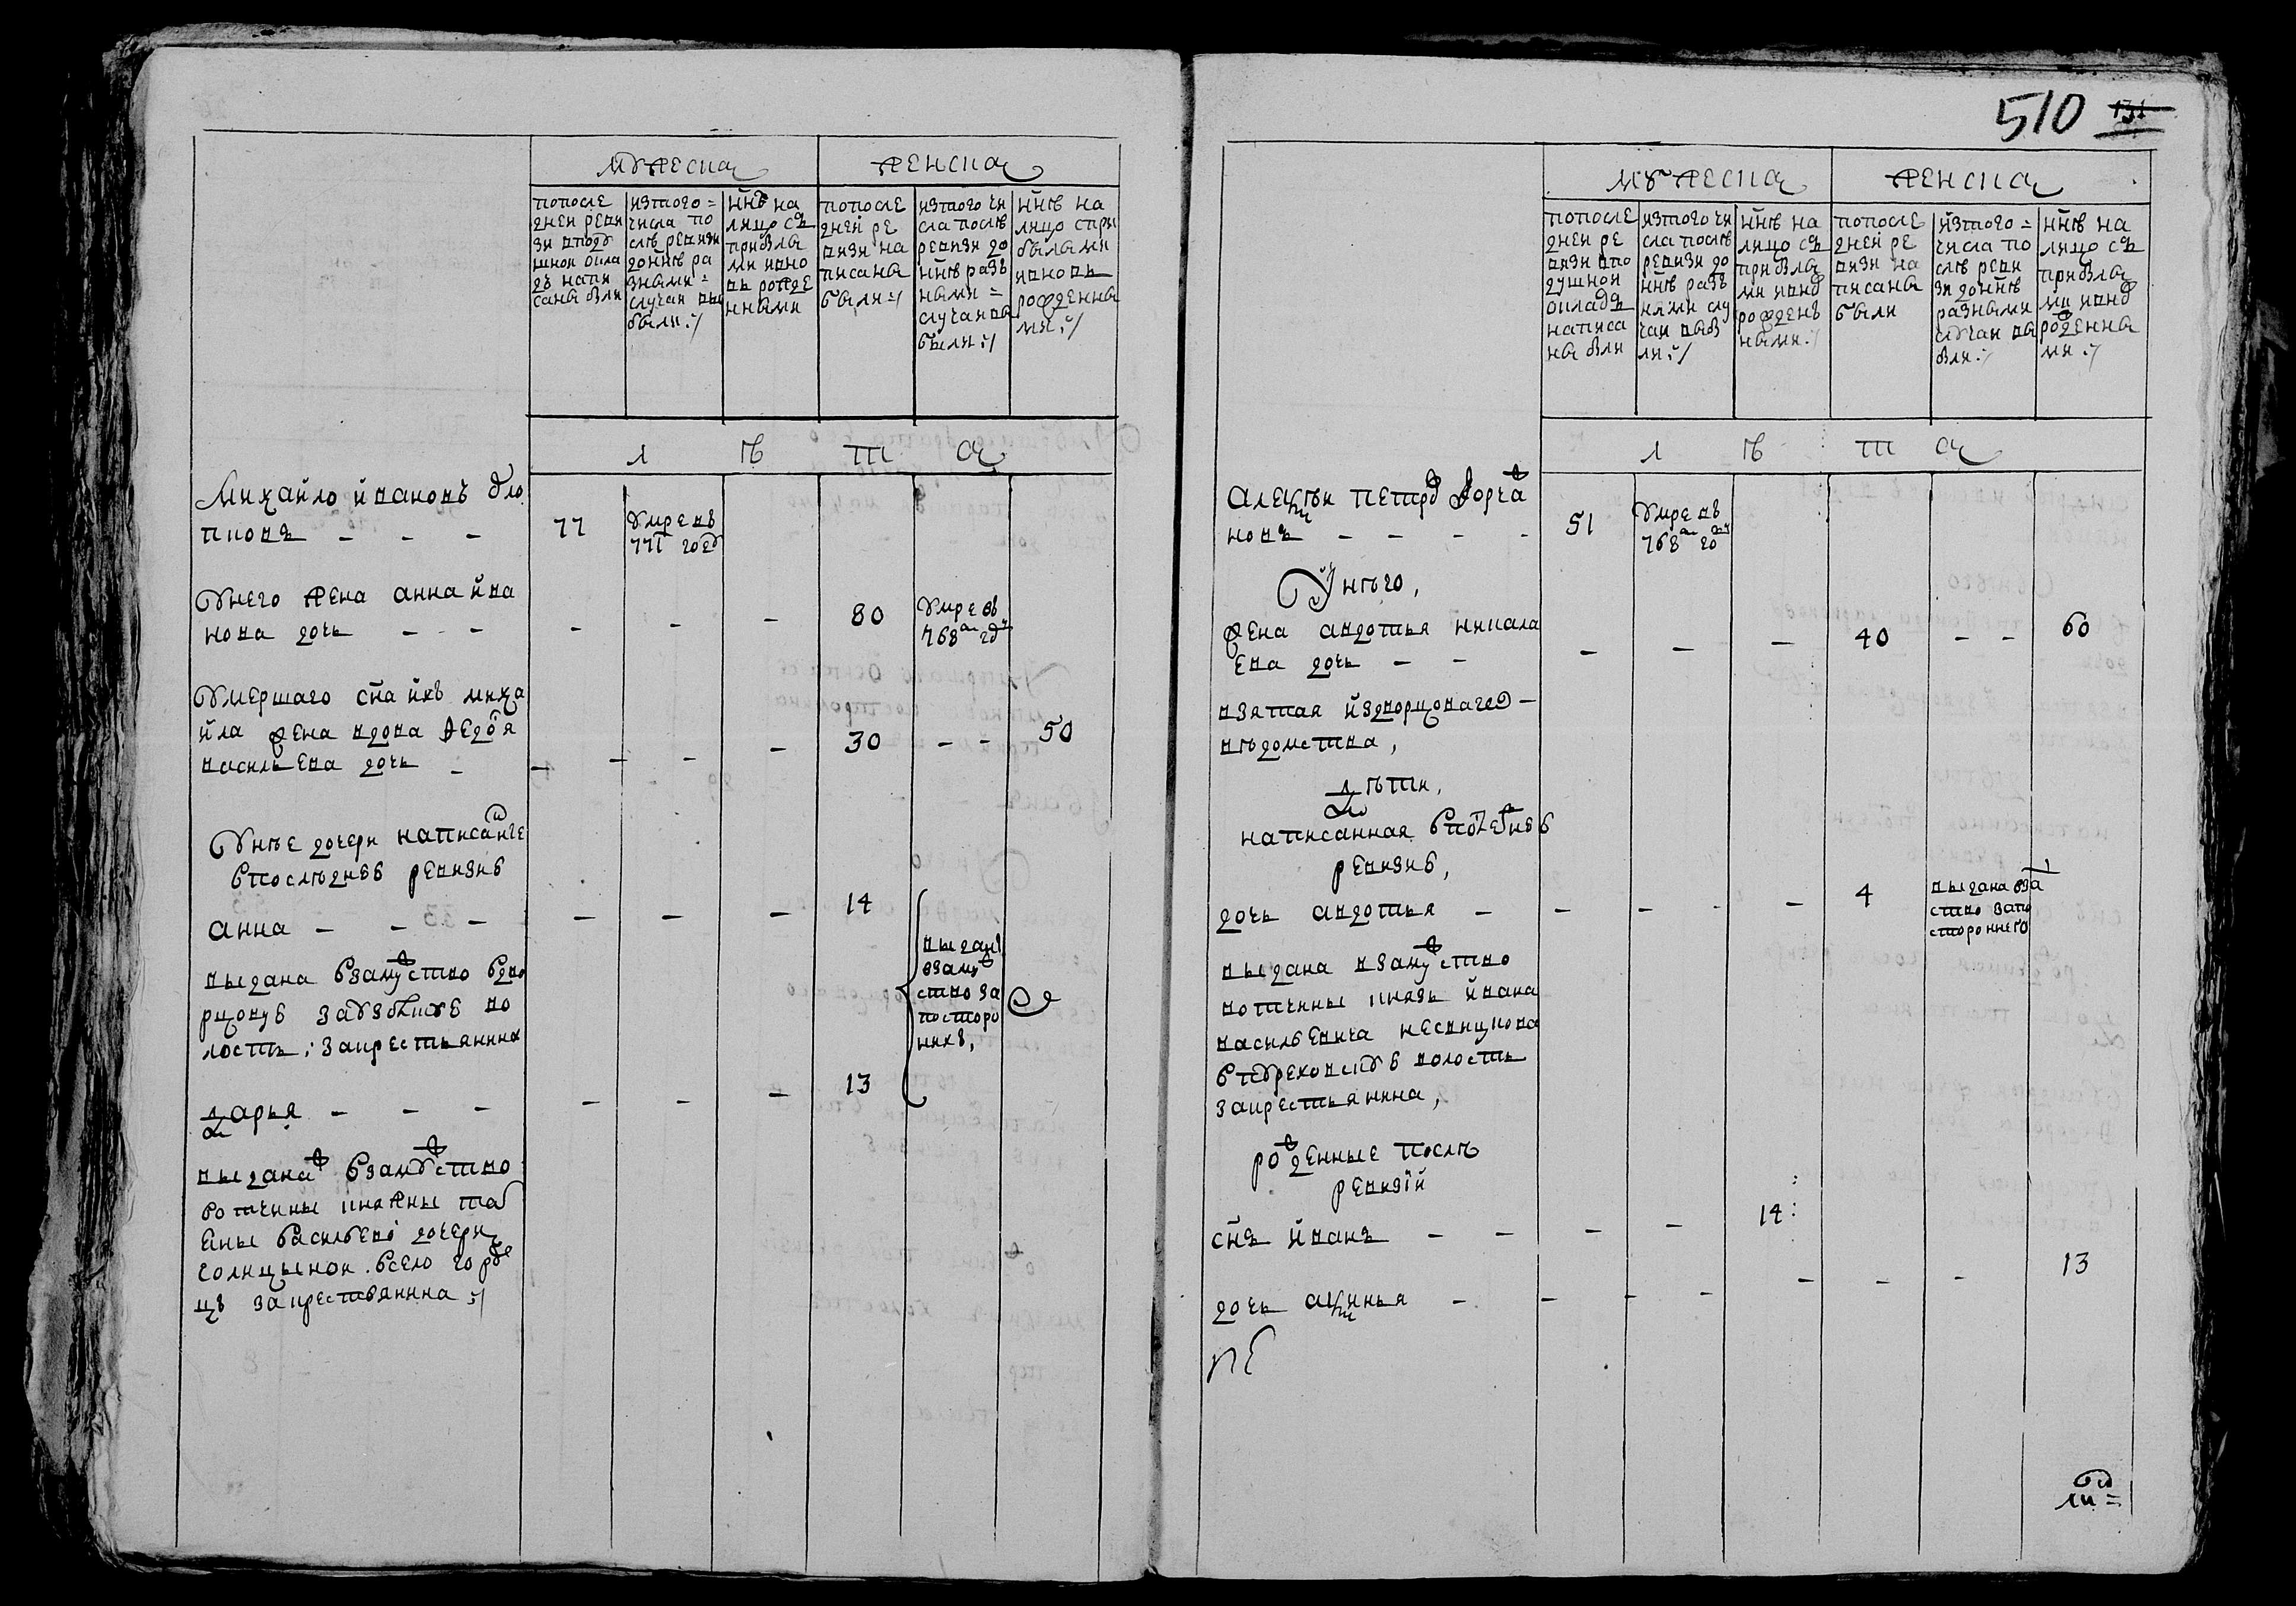 510 131
мужеска
женска
попосле
днеи реви
зи вподу
шнои окла
дъ напи
саны были
изтого =
числа по
слѣ ревизи
донн҃ѣ ра
зными =
случаи вы
были :/
нн҃ѣ на
лицо съ
прибылы
ми ивно
вь рожде
нными
попосле
днеи ре
визи на
писаны
были :/
изтого чи
сла послѣ
ревизи до
нн҃ѣ разъ
ными =
случаи вы
были :/
нн҃ѣ на
лицо спри
былыми
ивновь
рожденны
ми :/
л ѣ т а
Михайло ивановъ
пковъ - - -
77
умре въ
771 году
Унего жена анна ива
нова дочь - -
- - -
80
умре въ
768м году
Умершаго сн҃а ихъ миха
йла жена вдова Федося
васильева дочь -
- - - -
30
- -
50
Унѣе дочери написанные
впослѣдней ревизие
анна - - -
- - -
14
выданы
взамуж
ство за
посторо
нних,
выдана взамужство вдво
рцовую во
лость; закрестьянина
дарья - - -
- - -
13
выданаж взамужство
вотчины княжны тать
яны васильевои дочери
голицынои. всело
цъ закрестьянина :/
мужеска
женска
попосле
днеи ре
визи впо
душнои
окладъ
написа
ны были
изтого чи
сла послѣ
ревизи до
нн҃ѣ разъ
ными слу
чаи выб
ли :/
нн҃ѣ на
лицо съ
прибылы
ми ивнов
рожденъ
ными :/
попосле
днеи ре
визи на
писаны
были
изтого =
числа по
слѣ реви
зи донн҃ѣ
разными
случаи вы
были :/
нн҃ѣ на
лицо съ
прибылы
ми ивнов
рожденны
ми :/
л ѣ т а
Алексѣи петров
новъ - - - -
51
умре въ
768м году
Унѣго,
жена авдотья никола
ева дочь - -
- - -
40
- -
60
взятая издворцоваго
вѣдомства,
дѣти,
написанная впоследней
ревизие,
дочь авдотья -
- - -
4
выдана вза
ство запо
стороннего
выдана взамужство
вотчины князь ивана
васильевича несвицкова
волость
закрестьянина,
рожденные послѣ
ревизий
сн҃ъ иванъ - -
- -
14
дочь аксинья -
- - - - - -
13